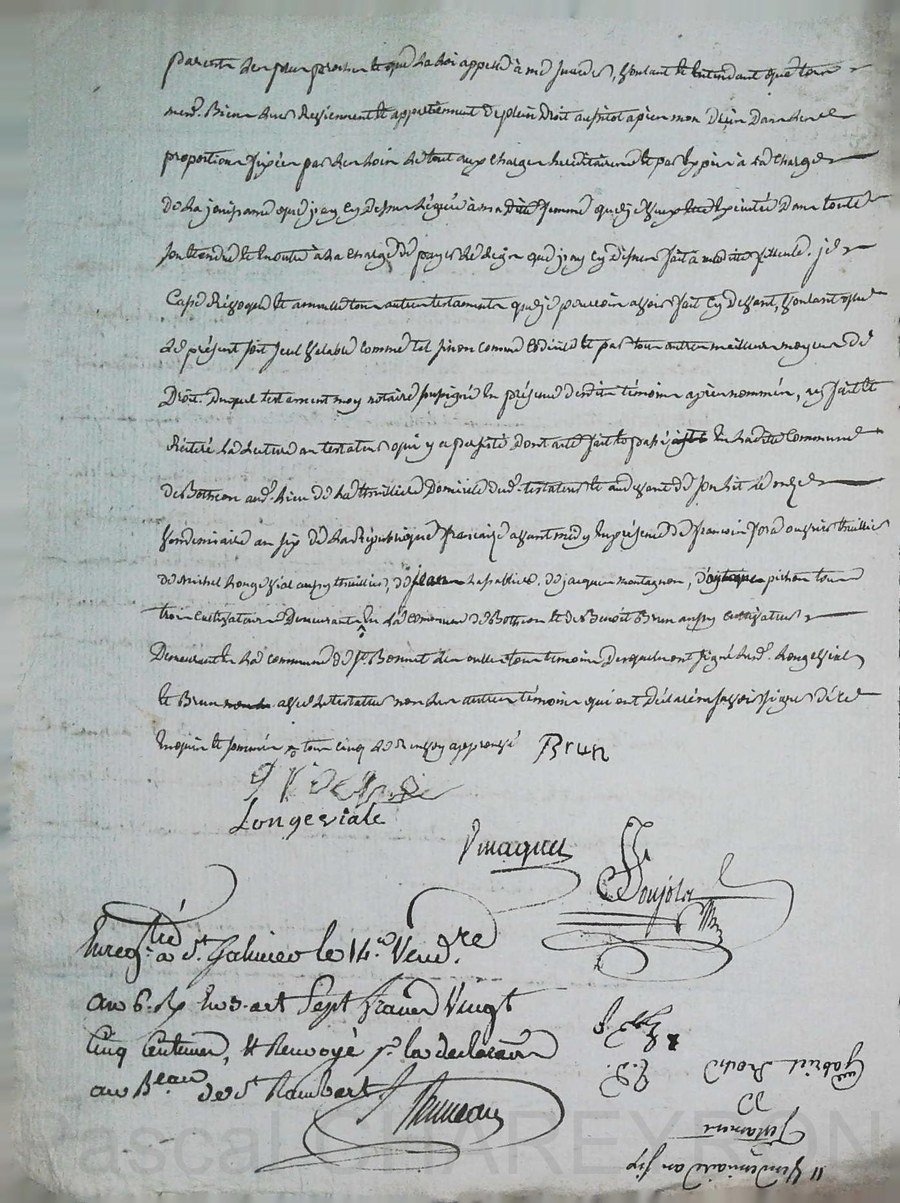 parents les plus proches que la loi appelle à me succeder, voulant et entendant que tous
mesd. Biens leurs Reviennent et appartiennent de plein Droit aussitot apres mon Décès Dans les
proportions fixées par les Loix le tout aux charges hereditaires et par exprès à la charge
De la jouissance que j'ay cy Dessus Léguée à madite femme que je veux Executée Dans toute
son etendue et Encore à la charge de payer le legs que j'ay cy dessus fait à madite filleule. je
Casse Révoque et annulle tous autres testaments que je pourrois avoir fait cy Devant, voulant que
le présent soit seul valable comme tel sinon comme Codicile et par tous autres meilleurs moyens de
Droit. Duquel testament moy notaire soussigné En présence desdits témoins après nommés, ay fait et
Réitéré la Lecture au testateur qui y a persisté Dont acte fait et passé En ladite Commune
de Bothéon aud. Lieu de la thuilliere Domicile dud. testateur et au devant de son Lit le onze
vendemiaire an six de la République française avant midy En présence de françois ouvrier thuillier
de Michel Longevial aussy thuillier, de jean Lapallus, de jacques montagnon, pichon tous
trois cultivateurs Demeurants En lad. commune de Bothéon et de Benoit Brun aussy cultivateur
Demeurant En lad. commune de St. Bonnet les oulles tous témoins Desquels ont signé lesd. Longevial
et Brun avec le testateur non les autres témoins qui ont Déclaré ne savoir signer De ce
Enquis et sommés tous cinq approuvé Brun
Longeviale
Vmagnet
Soujola
Enreg.tré a St. Galmier le 14.e Vend.re
an 6. Rp En 3. art Sept francs Vingt
Cinq Centimes, & Renvoyé pr. la declaration
au B.eau de St Rambert
Bruneau
Gabriel
Testament
11 Vendemiaire an six
Pascal CHAREYRON